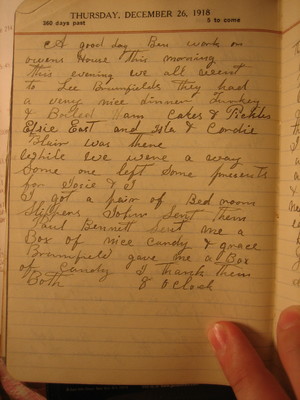 THURSDAY, DECEMBER 26, 1918
360 days past 5 to come
A good day Ben work on
owens House this morning
this evening we all went
to Lee Brumfields they had
a very nice dinner Turkey
& Boiled Ham Cakes & Pickles
Elsie East and Ila & Cordie
Blair was there
While we were a way
Some one left Some presents
for Socie & I
I got a pair of Bed room
Slippers Sent them
Bennett Sent me a
Box of nice Candy & grace
Brumfield gave me a Box
of Candy I thank them
Both 8 OClock